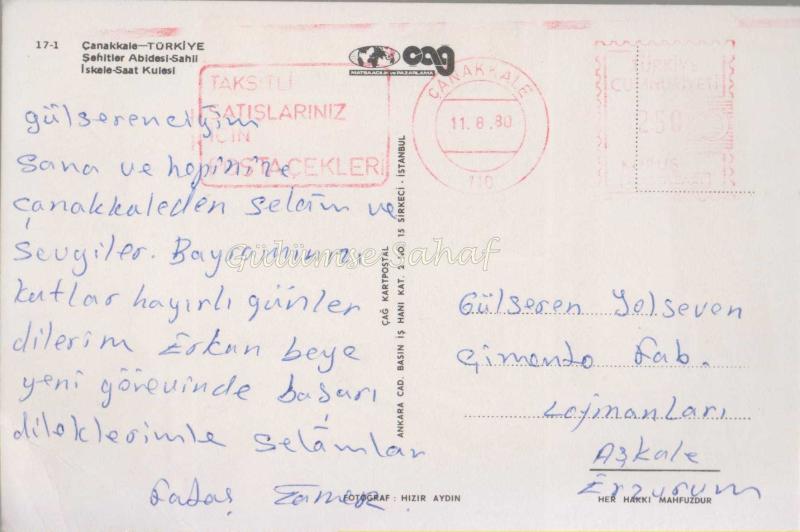 17-1 Çanakkale—TÜRKİYE
Şehitler Abidesi-Sahil
İskele-Saat Kulesi
cag
MATBAACILIK ve PAZARLAMA
TAKSİTLİ
SATIŞLARINIZ
İÇİN
POSTA ÇEKLERİ
ÇANAKKALE
11.8.80
TÜRKİYE
CUMHURİYETİ
250
KURUŞ
Gülserenciğim
Sana ve hepinize
Çanakkaleden selâm ve
sevgiler. Bayramınızı
kutlar hayırlı günler
dilerim Erkan beye
yeni görevinde başarı
dileklerimle selâmlar
Gülümse Sahaf
ÇAĞ KARTPOSTAL
ANKARA CAD. BASIN İŞ HANI KAT. 2 NO 15 SİRKECİ - İSTANBUL
Gülseren Yolseven
Çimento Fab.
Lojmanları
Aşkale
Erzurum
FOTOĞRAF : HIZIR AYDIN
HER HAKKI MAHFUZDUR